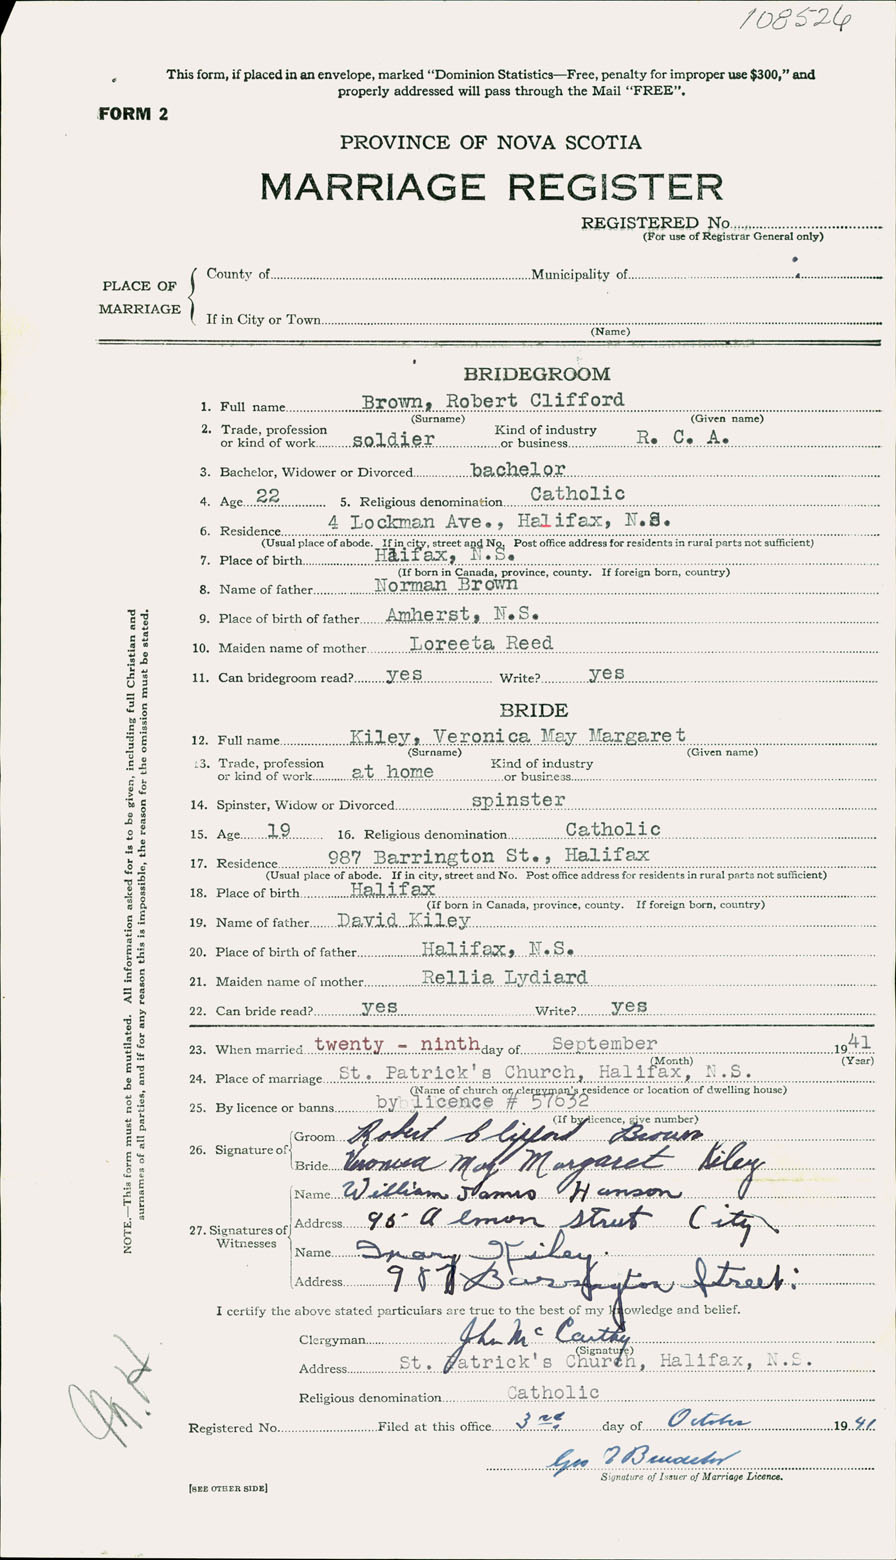 108526
This form, if placed in an envelope, marked "Dominion Statistics—Free, penalty for improper use $300," and
properly addressed will pass through the Mail "FREE".
FORM 2
PROVINCE OF NOVA SCOTIA
MARRIAGE REGISTER
REGISTERED No
(For use of Registrar General only)
PLACE OF MARRIAGE
County of Municipality of
If in City or Town
(Name)
BRIDEGROOM
1. Full name Brown, Robert Clifford
(Surname) (Given name)
2. Trade, profession or kind of work soldier Kind of industry or business R. C. A.
3. Bachelor, Widower or Divorced bachelor
4. Age 22 5. Religious denomination Catholic
6. Residence 4 Lockman Ave., Halifax, N.S.
(Usual place of abode. If in city, street and No. Post office address for residents in rural parts not sufficient)
7. Place of birth Haifax, N.S.
(If born in Canada, province, county. If foreign born, country)
8. Name of father Norman Brown
9. Place of birth of father Amherst, N.S.
10. Maiden name of mother Loreeta Reed
11. Can bridegroom read? yes Write? yes
BRIDE
12. Full name Kiley, Veronica May Margaret
(Surname) (Given name)
13. Trade, profession or kind of work at home Kind of industry or business
14. Spinster, Widow or Divorced spinster
15. Age 19 16. Religious denomination Catholic
17. Residence 987 Barrington St., Halifax
(Usual place of abode. If in city, street and No. Post office address for residents in rural parts not sufficient)
18. Place of birth Halifax
(If born in Canada, province, county. If foreign born, country)
19. Name of father David Kiley
20. Place of birth of father Halifax, N.S.
21. Maiden name of mother Rellia Lydiard
22. Can bride read? yes Write? yes
23. When married twenty - ninth day of September 1941
(Month) (Year)
24. Place of marriage St. Patrick's Church, Halifax, N.S.
(Name of church or clergyman's residence or location of dwelling house)
25. By licence or banns by licence # 57632
(If by licence, give number)
26. Signature of
Groom Robert Clifford Brown
Bride Veronica May Margaret Kiley
27. Signatures of Witnesses
Name William James Hanson
Address 95 Almon Street City
Name Mary Kiley.
Address 987 Barrington Street:
I certify the above stated particulars are true to the best of my knowledge and belief.
Clergyman John McCarthy
(Signature)
Address St. Patrick's Church, Halifax, N.S.
Religious denomination Catholic
Registered No. Filed at this office 3rd day of October 1941
Signature of Issuer of Marriage Licence.
[SEE OTHER SIDE]
NOTE.—This form must not be mutilated. All information asked for is to be given, including full Christian and
surnames of all parties, and if for any reason this is impossible, the reason for the omission must be stated.